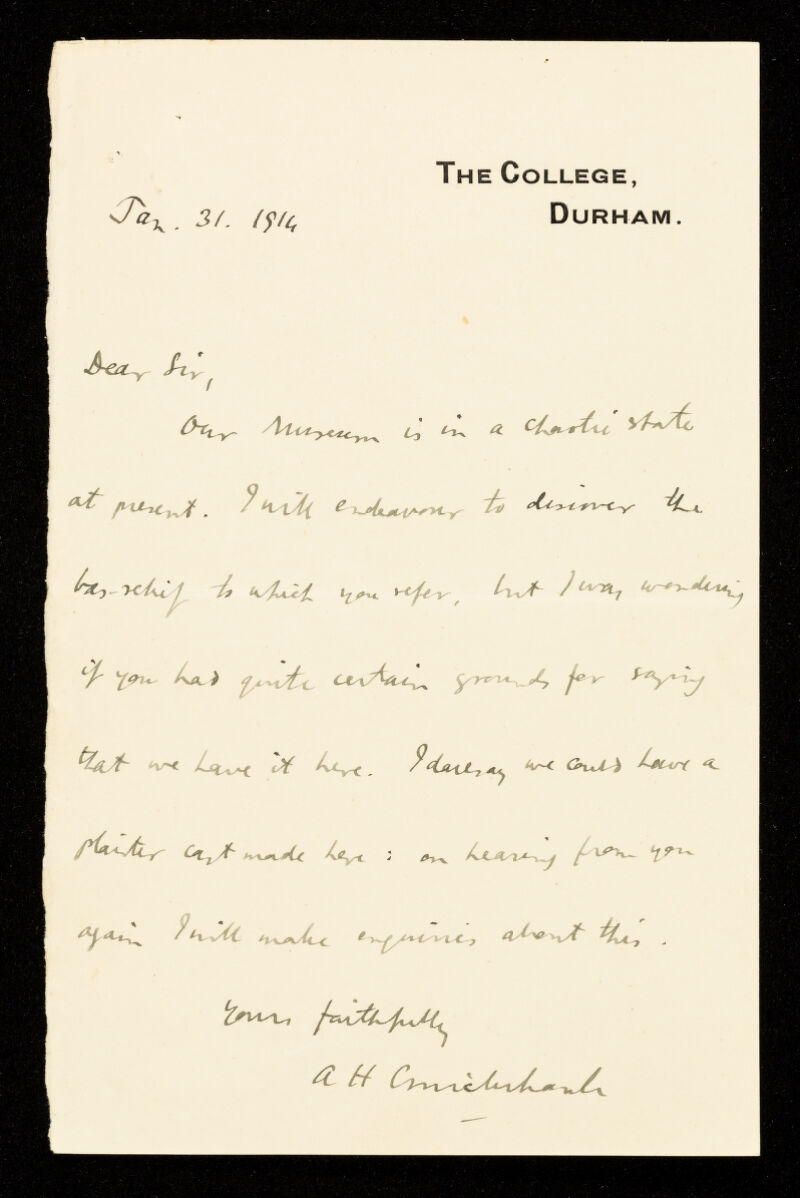 THE COLLEGE,
DURHAM.
Jan. 31. 1914
Dear Sir,
Our Museum is in a chaotic state
at present. I will endeavour to discover the
bas-relief to which you refer, but I was wondering
if you had quite certain grounds for saying
that we have it here. I daresay we could have a
plaister cast made here : on hearing from you
again I will make enquiries about this.
Yours faithfully
A H Cruickshank